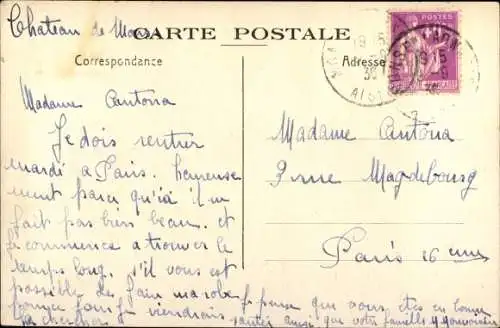 Chateau de
CARTE POSTALE
Correspondance
Adresse
POSTES
Madame Cantona
Je dois rentrer
mardi a Paris. heureuse
ment parce qu'ici il ne
fait pas bien beau. et
je commence a trouver le
temps long. s'il vous est
possible de faire ma robe
je viendrais
la chercher
je pense que vous etes en bonne
santée ainsi que votre famille
Madame Cantona
3 rue Magdebourg
Paris 16 eme